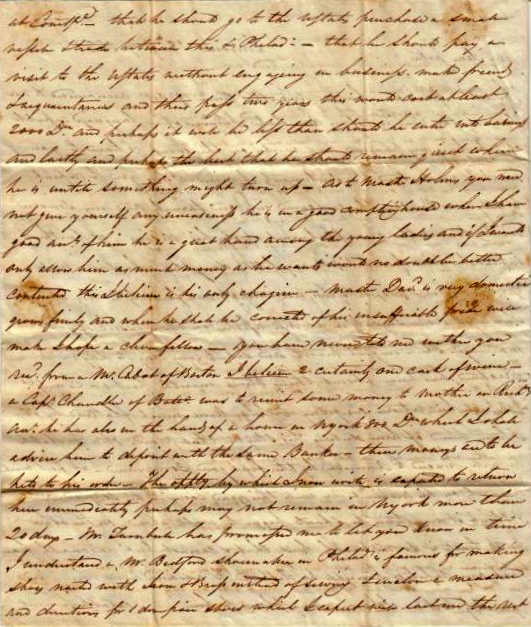 that he should go to the UStates purchase a small
vessel & trade between this & Philad.a — that he should pay a
visit to the UStates without engaging in business make friends
& acquaintances and thus pass two years this would cost at least
2000 D.rs and perhaps it will be less than should he enter into
and lastly and perhaps the best that he should remain where
he is untile something might turn up — as to Mast.r Holms you need
not give yourself any uneasiness he is in a good comptinghouse when I have
good acc.ts of him he is a great hand among the young ladies and if I would
only allow him as much money as he wants would no doubt be better
contented this I believe is his only chagrin — mast.r Dav.d is very domestic
grows finely and when he shall be corrected of his insufferable pride will
make I hope a clever fellow — you have never told me wether you
rec.d from a Mr. Abot of Boston I believe 2 certainly one cask of wine —
a Cap.t Chandler of Balt.o was to remit some money to Mother on
he has also in the hands of a house in NYork 800 D.rs what I shall
advise him to deposit with the same Banker — these moneys are to be
kept to his order — The opp.ty by which I now write is expected to return
here immediately perhaps may not remain in NYork more than
20 days — Mr. Turnbull has promised me to let you know in time
I understand a Mr. Bedford shoemaker in Philad.a is famous for making
shoes nailed with Iron or Brass instead of sewing I inclose a measure
and directions for 1 doz. pair shoes which I expect will last me the rest